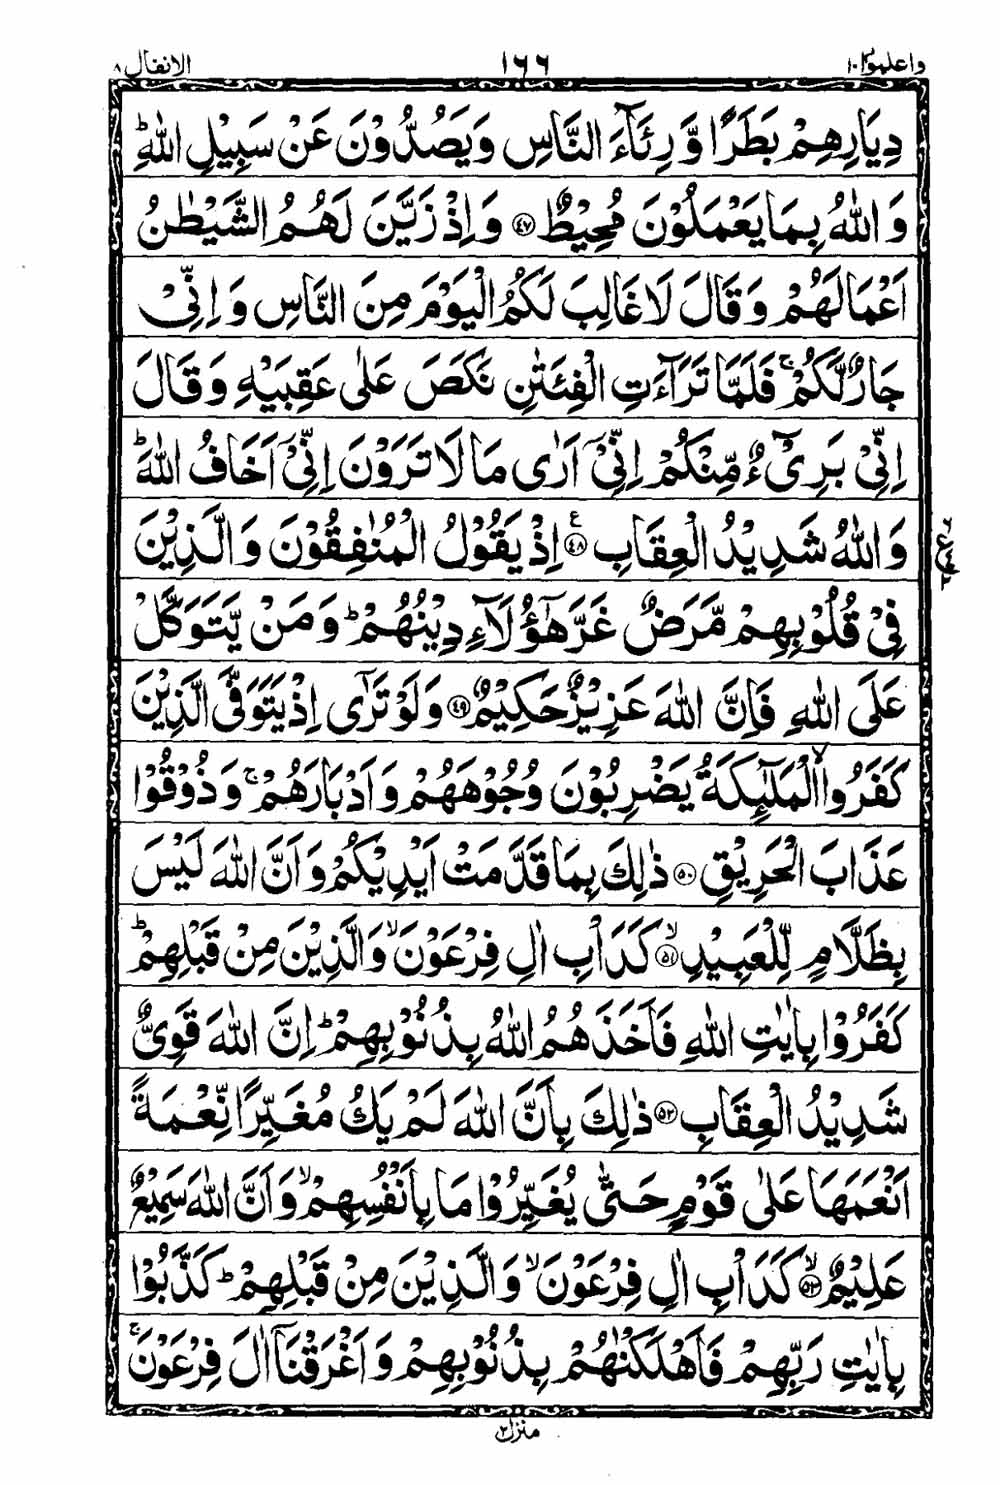 واعلموا ١٠ ١٦٦ الانفال ٨
دِيَارِهِمْ بَطَرًا وَّ رِئَآءَ النَّاسِ وَيَصُدُّوْنَ عَنْ سَبِيْلِ اللّٰهِ ؕ
وَ اللّٰهُ بِمَا يَعْمَلُوْنَ مُحِيْطٌ ﴿۴۷﴾ وَ اِذْ زَيَّنَ لَهُمُ الشَّيْطٰنُ
اَعْمَالَهُمْ وَ قَالَ لَا غَالِبَ لَكُمُ الْيَوْمَ مِنَ النَّاسِ وَ اِنِّيْ
جَارٌ لَّكُمْ ۚ فَلَمَّا تَرَآءَتِ الْفِئَتٰنِ نَكَصَ عَلٰى عَقِبَيْهِ وَ قَالَ
اِنِّيْ بَرِيْٓءٌ مِّنْكُمْ اِنِّيْۤ اَرٰى مَا لَا تَرَوْنَ اِنِّيْۤ اَخَافُ اللّٰهَ ؕ
وَ اللّٰهُ شَدِيْدُ الْعِقَابِ ﴿۴۸﴾ ع اِذْ يَقُوْلُ الْمُنٰفِقُوْنَ وَ الَّذِيْنَ
فِيْ قُلُوْبِهِمْ مَّرَضٌ غَرَّ هٰۤؤُلَآءِ دِيْنُهُمْ ؕ وَ مَنْ يَّتَوَكَّلْ
عَلَى اللّٰهِ فَاِنَّ اللّٰهَ عَزِيْزٌ حَكِيْمٌ ﴿۴۹﴾ وَ لَوْ تَرٰۤى اِذْ يَتَوَفَّى الَّذِيْنَ
كَفَرُوا ۙ الْمَلٰٓئِكَةُ يَضْرِبُوْنَ وُجُوْهَهُمْ وَ اَدْبَارَهُمْ ۚ وَ ذُوْقُوْا
عَذَابَ الْحَرِيْقِ ﴿۵۰﴾ ذٰلِكَ بِمَا قَدَّمَتْ اَيْدِيْكُمْ وَ اَنَّ اللّٰهَ لَيْسَ
بِظَلَّامٍ لِّلْعَبِيْدِ ۙ﴿۵۱﴾ كَدَاْبِ اٰلِ فِرْعَوْنَ ۙ وَ الَّذِيْنَ مِنْ قَبْلِهِمْ ؕ
كَفَرُوْا بِاٰيٰتِ اللّٰهِ فَاَخَذَهُمُ اللّٰهُ بِذُنُوْبِهِمْ ؕ اِنَّ اللّٰهَ قَوِيٌّ
شَدِيْدُ الْعِقَابِ ﴿۵۲﴾ ذٰلِكَ بِاَنَّ اللّٰهَ لَمْ يَكُ مُغَيِّرًا نِّعْمَةً
اَنْعَمَهَا عَلٰى قَوْمٍ حَتّٰى يُغَيِّرُوْا مَا بِاَنْفُسِهِمْ ۙ وَ اَنَّ اللّٰهَ سَمِيْعٌ
عَلِيْمٌ ۙ﴿۵۳﴾ كَدَاْبِ اٰلِ فِرْعَوْنَ ۙ وَ الَّذِيْنَ مِنْ قَبْلِهِمْ ؕ كَذَّبُوْا
بِاٰيٰتِ رَبِّهِمْ فَاَهْلَكْنٰهُمْ بِذُنُوْبِهِمْ وَ اَغْرَقْنَاۤ اٰلَ فِرْعَوْنَ ۚ
منزل ٢